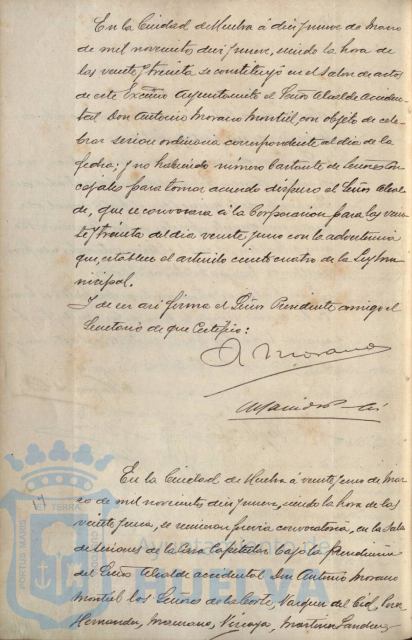 En la Ciudad de Huelva á diez y nueve de Marzo
de mil novecientos diez y nueve, siendo la hora de
las veinte y treinta se constituyó en el Salon de actos
de este Excmo Ayuntamiento el Señor Alcalde acciden-
tal Don Antonio Morano Montiel, con objeto de cele-
brar sesion ordinaria correspondiente al dia de la
fecha; y no habiendo número bastante de Señores Con-
cejales para tomar acuerdo dispuso el Señor Alcal-
de, que se convocara á la Corporacion para las vein-
te y treinta del dia veinte y uno con la advertencia
que, establece el articulo ciento cuatro de la Ley Mu-
nicipal.
Y de ser asi firma el Señor Presidente conmigo el
Secretario de que Certifico:
A Morano
En la Ciudad de Huelva á veinte y uno de Mar-
zo de mil novecientos diez y nueve, siendo la hora de las
veinte y una, se reunieron previa convocatoria, en la Sala
de sesiones de la Casa Capitular bajo la Presidencia
del Señor Alcalde accidental Don Antonio Morano
Montiel los Señores de la Corte, Vazquez del Cid,
Hernandez, Martinez Sanchez
PORTUS MARIS
ET TERRA
Ayuntamiento de
HUELVA